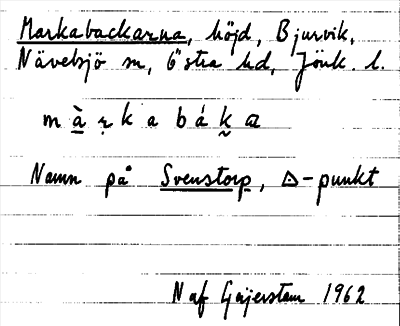 Markabackarna, höjd, Bjurvik,
Nävelsjö sn, Östra hd, Jönk. l.
m à̲ ṛ k a b á k̰ a
Namn på Svenstorp, △-punkt
N af Geijerstam 1962